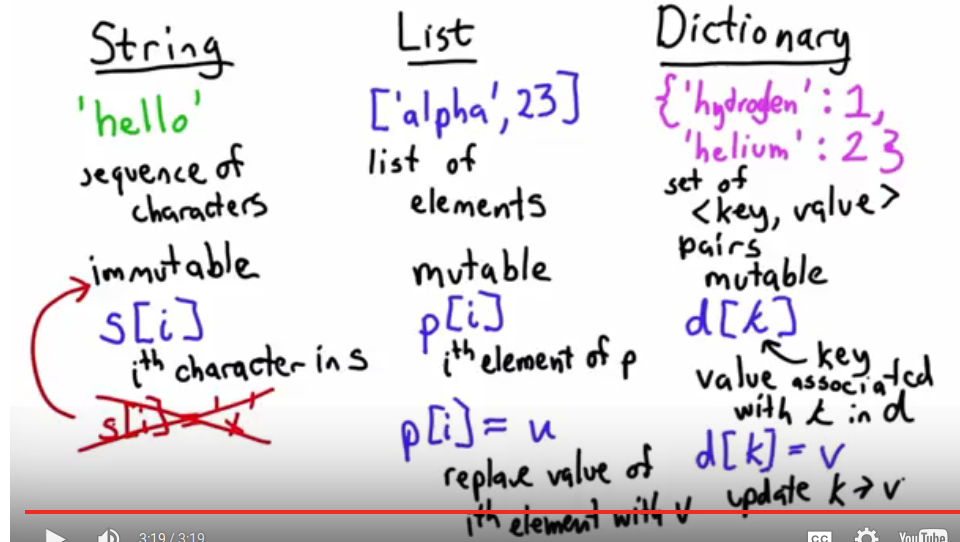 String
'hello'
sequence of
characters
immutable
s[i]
ith character in s
s[i] = 'x'
List
['alpha', 23]
list of
elements
mutable
p[i]
ith element of p
p[i] = u
replace value of
ith element with v
Dictionary
{'hydrogen' : 1,
'helium' : 2 }
set of
<key, value>
pairs
mutable
d[k]
key
value associated
with k in d
d[k] = v
update k → v
3:19 / 3:19
CC
YouTube